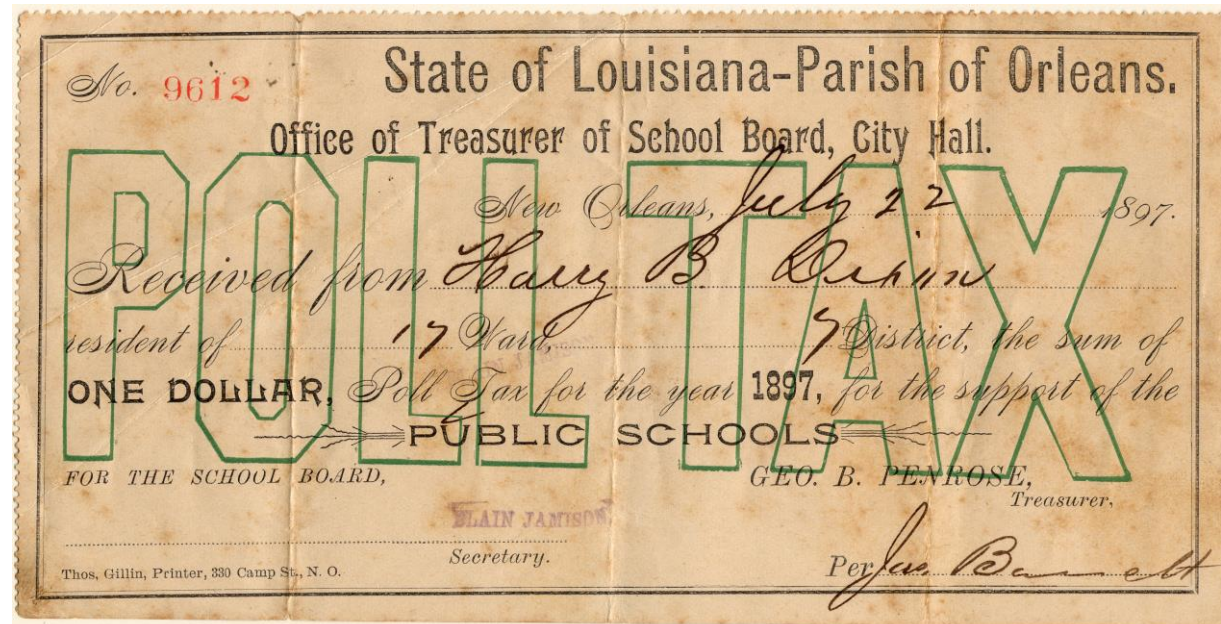 No. 9612
State of Louisiana-Parish of Orleans.
Office of Treasurer of School Board, City Hall.
POLL TAX
New Orleans, July 22 1897.
Received from Harry B. Dixon
resident of 17 Ward, 7 District, the sum of
ONE DOLLAR, Poll Tax for the year 1897, for the support of the
PUBLIC SCHOOLS
FOR THE SCHOOL BOARD,
GEO. B. PENROSE,
Treasurer,
BLAIN JAMISON,
Secretary.
Thos, Gillin, Printer, 330 Camp St., N. O.
Per Jas.